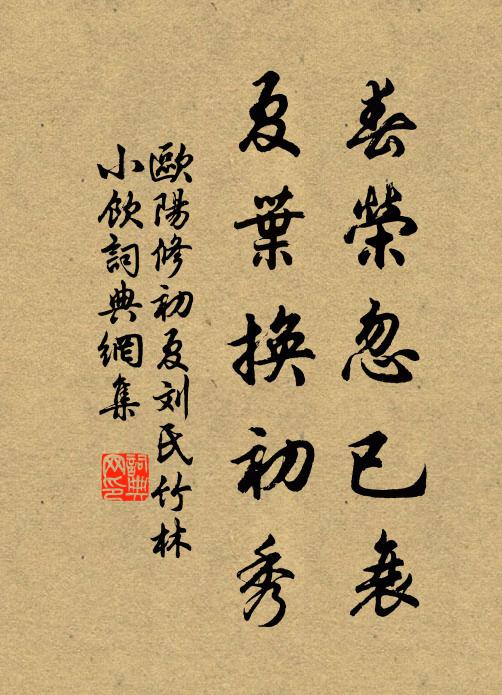 春榮忽已衰
夏葉換初秀
歐陽修初夏刘氏竹林
小飲詞典網集
詞典
网印